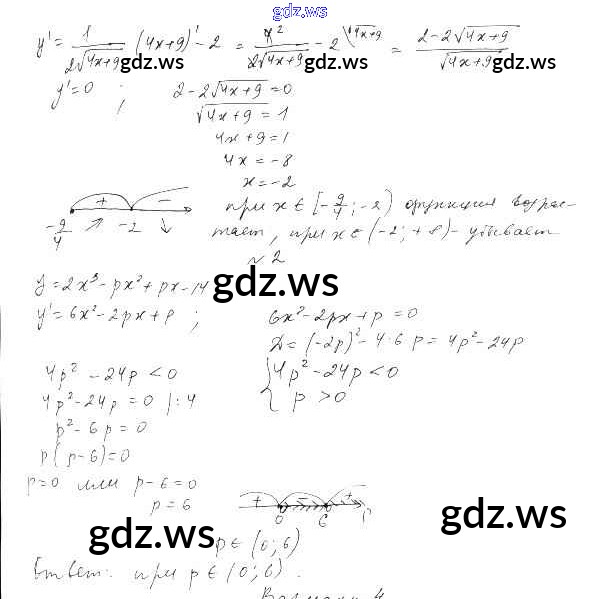 gdz.ws
y' = 1/(2√(4x+9)) · (4x+9)' - 2 = 4²/(2√(4x+9)) - 2 \√(4x+9) = (2-2√(4x+9))/√(4x+9)
gdz.ws gdz.ws gdz.ws
y'=0 ; 2-2√(4x+9)=0
√(4x+9) = 1
4x+9=1
4x=-8
x=-2
+ -
-9/4 ↗ -2 ↘
при x∈[-9/4; -2) функция возрас-
тает, при x∈(-2; +8) - убывает
№2
y=2x³-px²+px-14
gdz.ws
y'=6x²-2px+p ; 6x²-2px+p=0
Д=(-2p)²-4·6p=4p²-24p
4p²-24p<0 {4p²-24p<0
4p²-24p=0 |:4 p>0
p²-6p=0
p(p-6)=0
p=0 или p-6=0
p=6
+ - +
0 6 p
gdz.ws gdz.ws
p∈(0;6)
Ответ: при p∈(0;6).